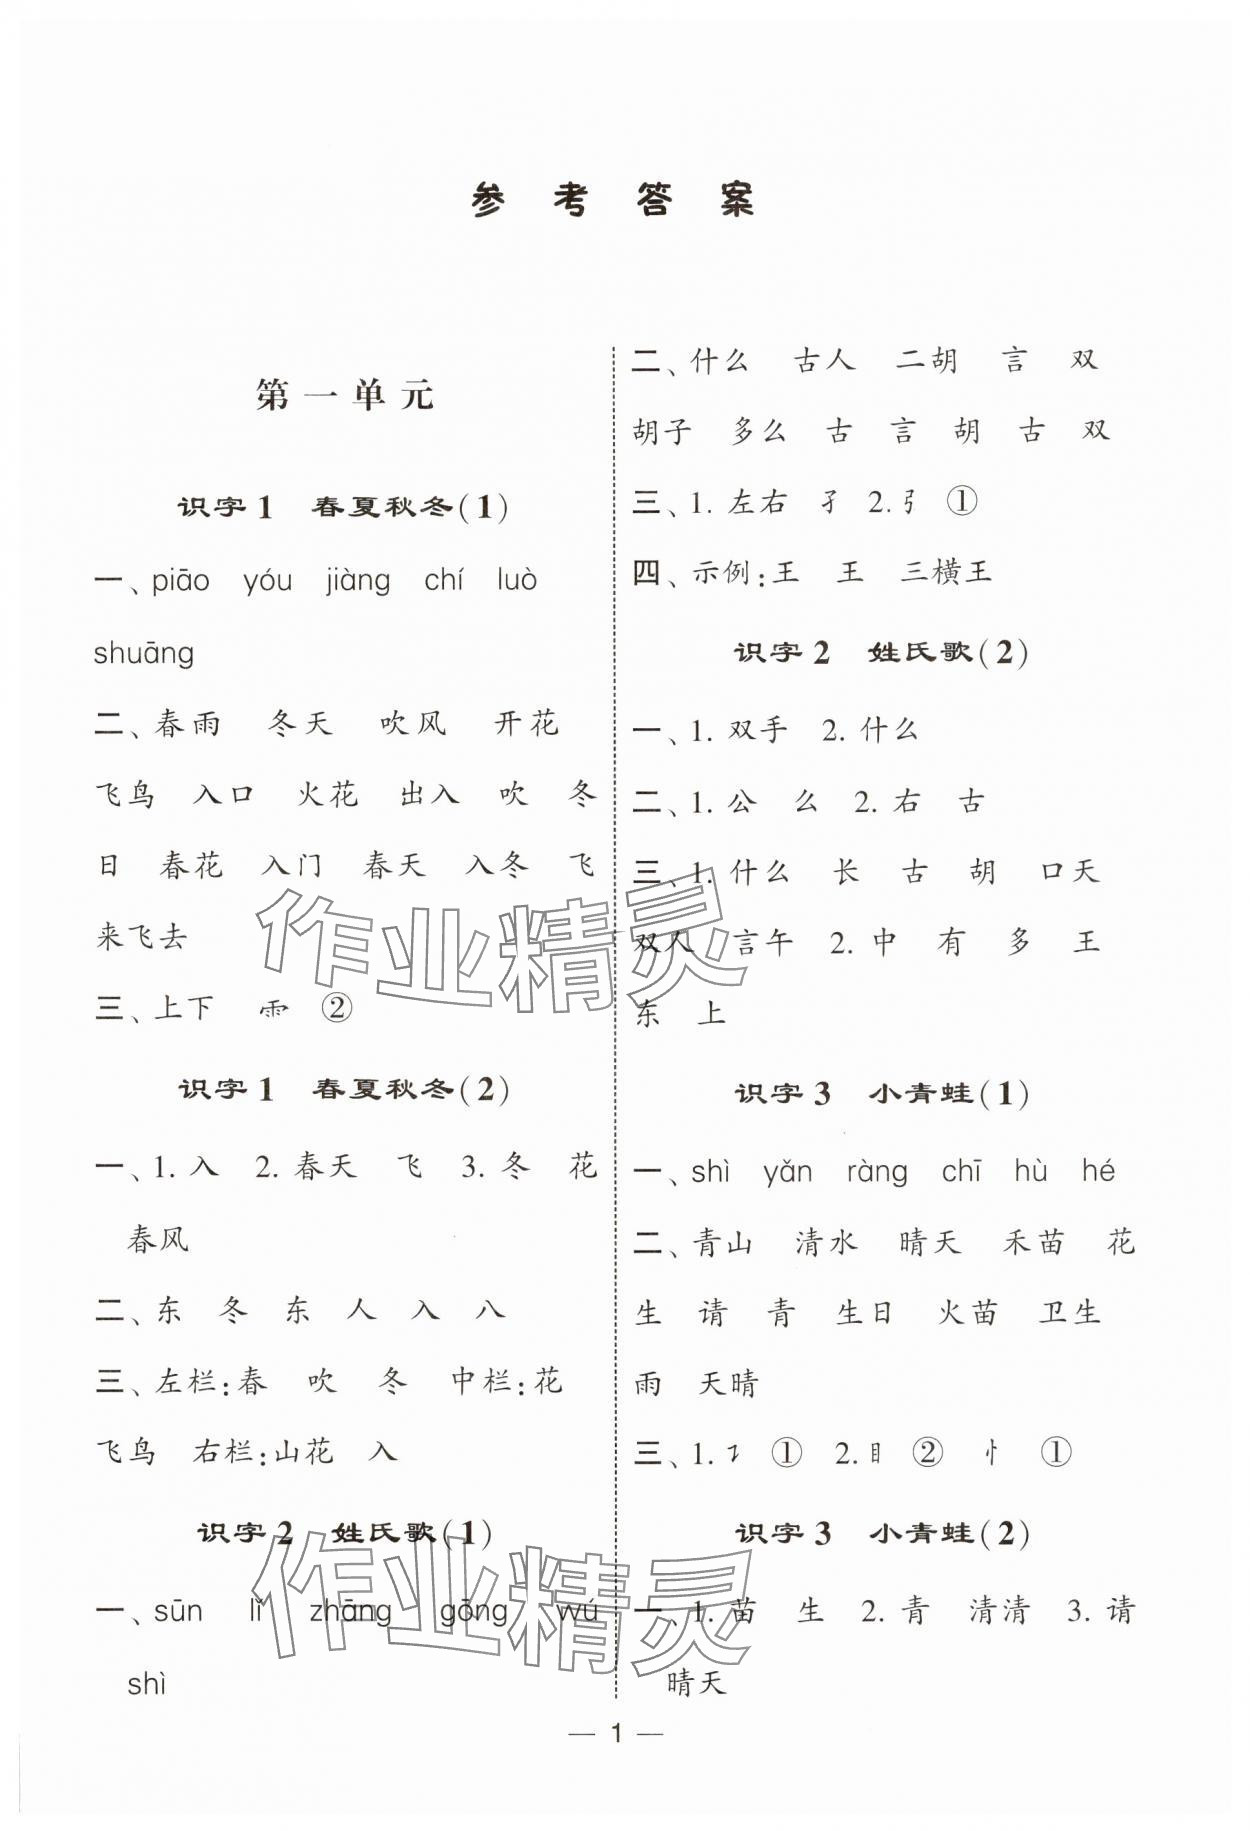 参考答案
第一单元
识字1 春夏秋冬(1)
一、piāo yóu jiàng chí luò
shuāng
二、春雨 冬天 吹风 开花
飞鸟 入口 火花 出入 吹 冬
日 春花 入门 春天 入冬 飞
来飞去
三、上下 ⻗ ②
识字1 春夏秋冬(2)
一、1. 入 2. 春天 飞 3. 冬 花
春风
二、东 冬 东 人 入 八
三、左栏:春 吹 冬 中栏:花
飞鸟 右栏:山花 入
识字2 姓氏歌(1)
一、sūn lǐ zhāng gōng wú
shì
二、什么 古人 二胡 言 双
胡子 多么 古 言 胡 古 双
三、1. 左右 孑 2. ㇢ ①
四、示例:王 王 三横王
识字2 姓氏歌(2)
一、1. 双手 2. 什么
二、1. 公 么 2. 右 古
三、1. 什么 长 古 胡 口天
双人 言午 2. 中 有 多 王
东 上
识字3 小青蛙(1)
一、shì yǎn ràng chī hù hé
二、青山 清水 晴天 禾苗 花
生 请 青 生日 火苗 卫生
雨 天晴
三、1. ㇆ ① 2. 目 ② 忄 ①
识字3 小青蛙(2)
一、1. 苗 生 2. 青 清清 3. 请
晴天
作业精灵
作业精灵
— 1 —